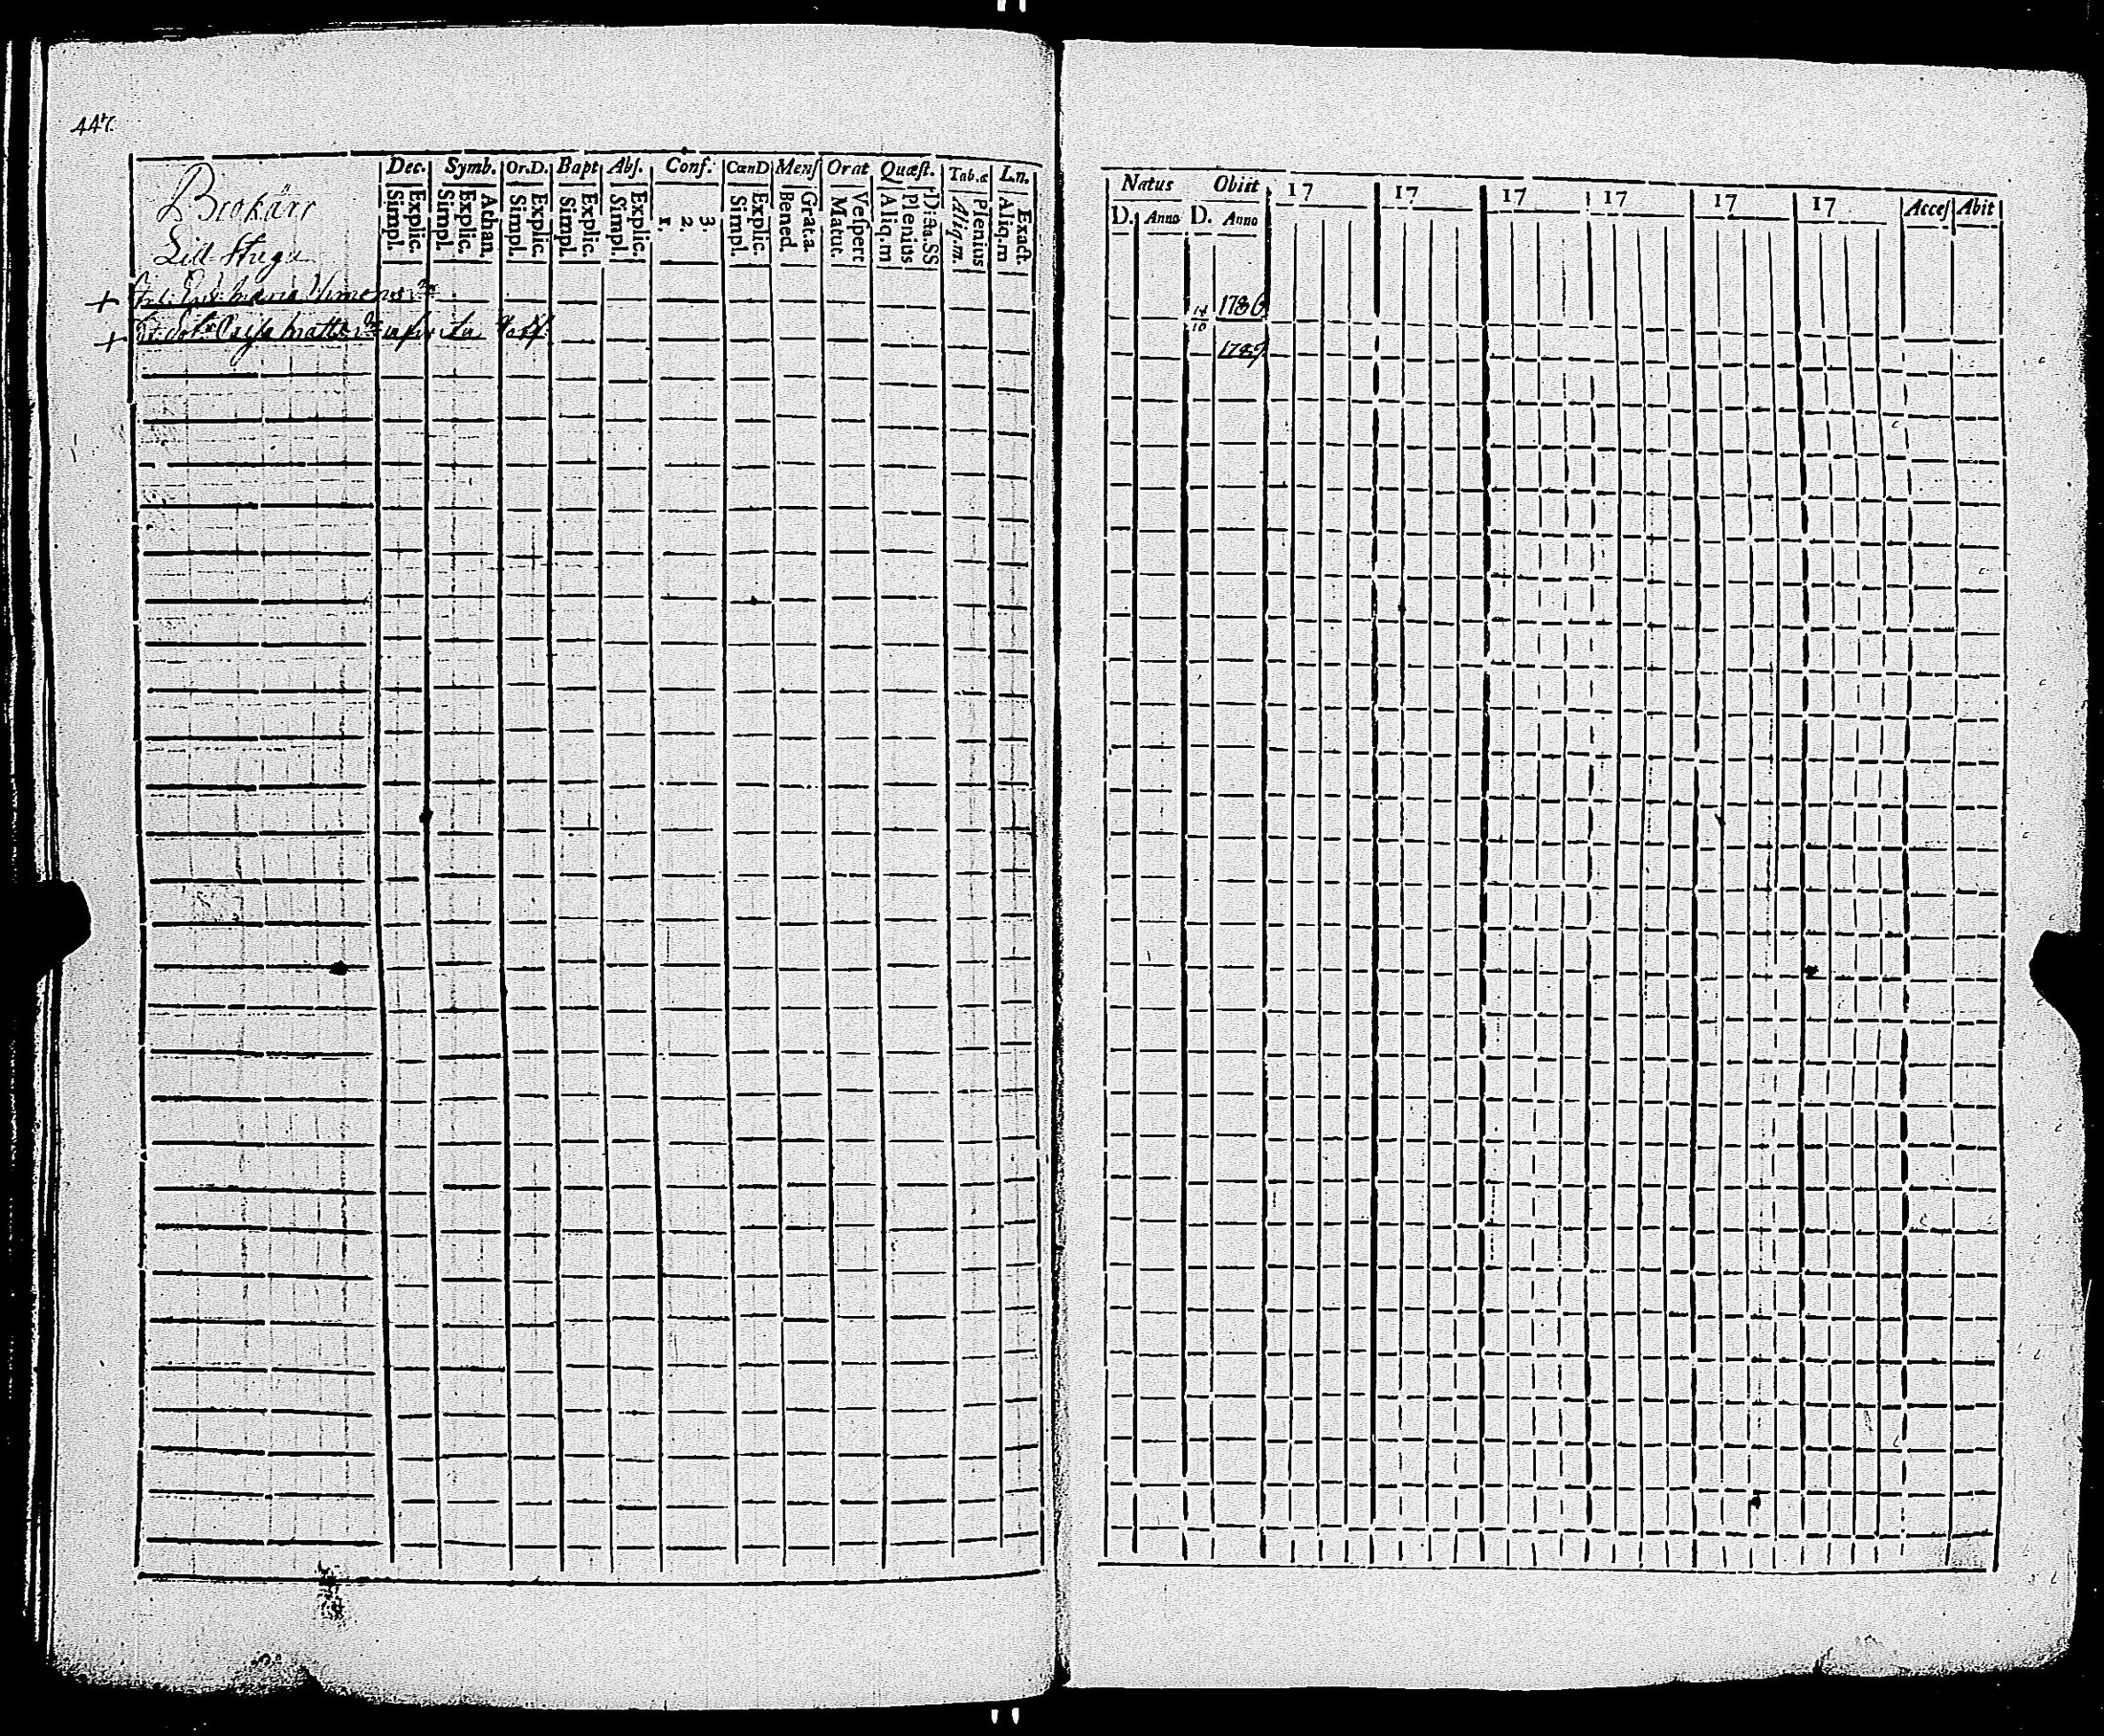 447.
Brokärr
Lill Stuga
Dec. Symb. Or.D. Bapt Abſ. Conf. CœnD Menſ Orat Quæſt. Tab.æ L.n.
Simpl. Explic. Simpl. Explic. Athan. Simpl. Explic. Simpl. Explic. Simpl. Explic. 1. 2. 3 Simpl. Explic. Bened. Grat.a. Matut. Veſpert Aliq.m Plenius Dicta.SS Aliq.m. Plenius Aliq.m Exact.
+ Enk. Maria
+ Caiſa Matts
Natus Obiit 17 17 17 17 17 17 Acceſ Abit
D. Anno D. Anno
1786
14/10
1789